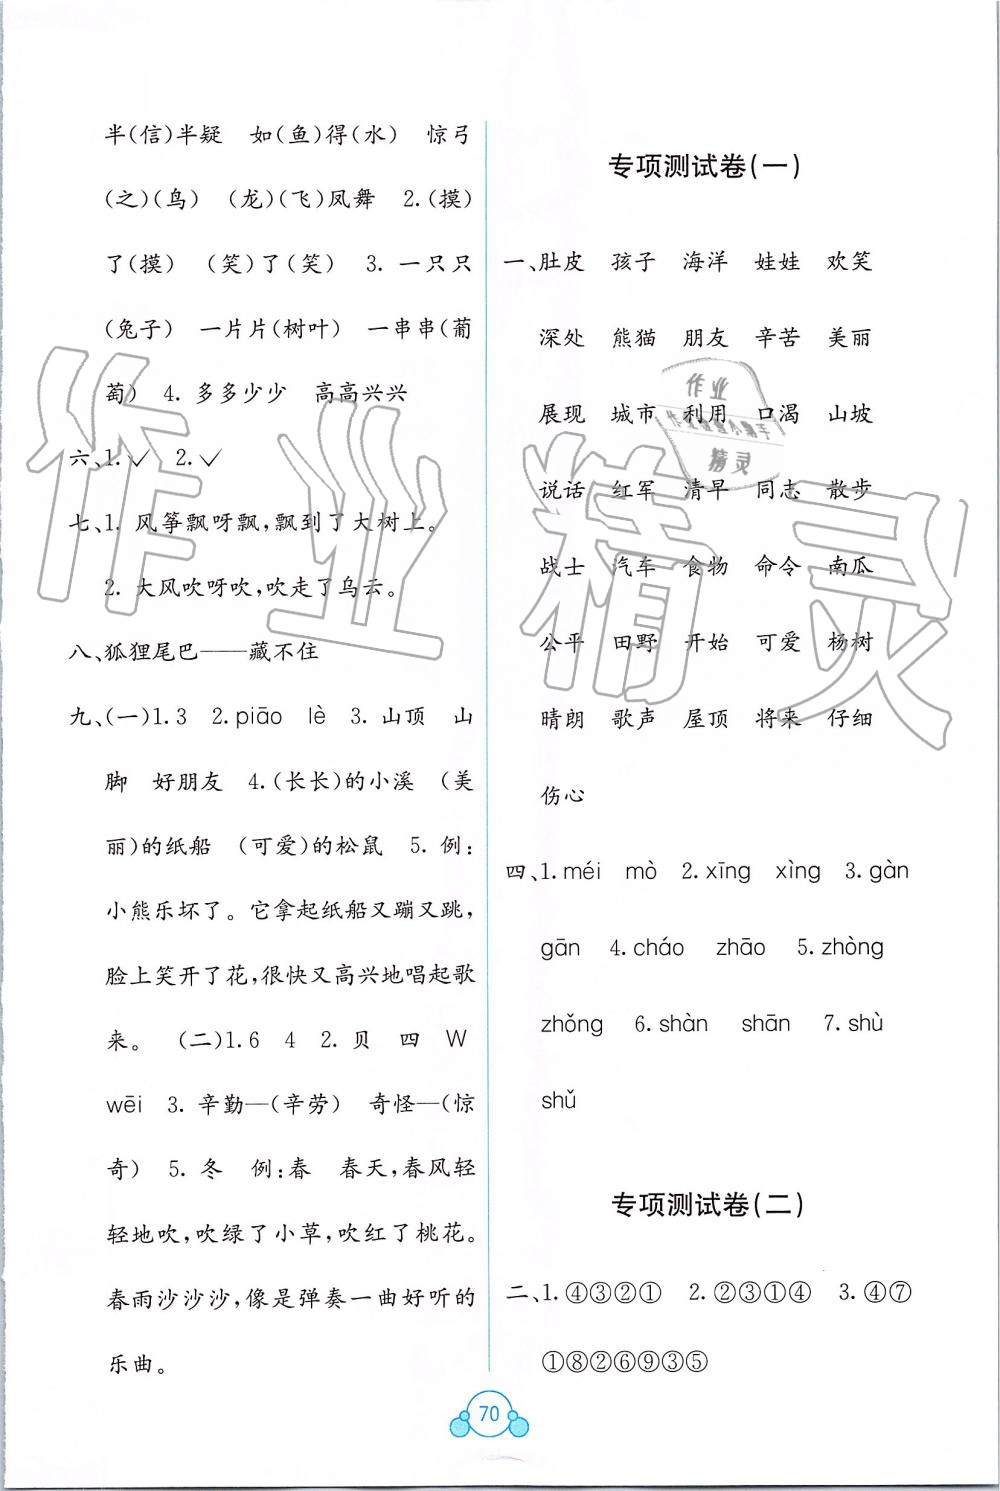 半(信)半疑 如(鱼)得(水) 惊弓
(之)(鸟) (龙)(飞)凤舞 2.(摸)
了(摸) (笑)了(笑) 3. 一只只
(兔子) 一片片(树叶) 一串串(葡
萄) 4. 多多少少 高高兴兴
六、1.✓ 2.✓
七、1. 风筝飘呀飘,飘到了大树上。
2. 大风吹呀吹,吹走了乌云。
八、狐狸尾巴——藏不住
九、(一)1.3 2.piāo lè 3. 山顶 山
脚 好朋友 4.(长长)的小溪 (美
丽)的纸船 (可爱)的松鼠 5. 例:
小熊乐坏了。它拿起纸船又蹦又跳,
脸上笑开了花,很快又高兴地唱起歌
来。 (二)1.6 4 2. 贝 四 W
wēi 3. 辛勤—(辛劳) 奇怪—(惊
奇) 5. 冬 例:春 春天,春风轻
轻地吹,吹绿了小草,吹红了桃花。
春雨沙沙沙,像是弹奏一曲好听的
乐曲。
专项测试卷(一)
一、肚皮 孩子 海洋 娃娃 欢笑
深处 熊猫 朋友 辛苦 美丽
展现 城市 利用 口渴 山坡
说话 红军 清早 同志 散步
战士 汽车 食物 命令 南瓜
公平 田野 开始 可爱 杨树
晴朗 歌声 屋顶 将来 仔细
伤心
四、1.méi mò 2.xīng xìng 3.gàn
gān 4.cháo zhāo 5.zhòng
zhǒng 6.shàn shān 7.shù
shǔ
专项测试卷(二)
二、1.④③②① 2.②③①④ 3.④⑦
①⑧②⑥⑨③⑤
70
作业精灵
作业
作业检查小助手
精灵